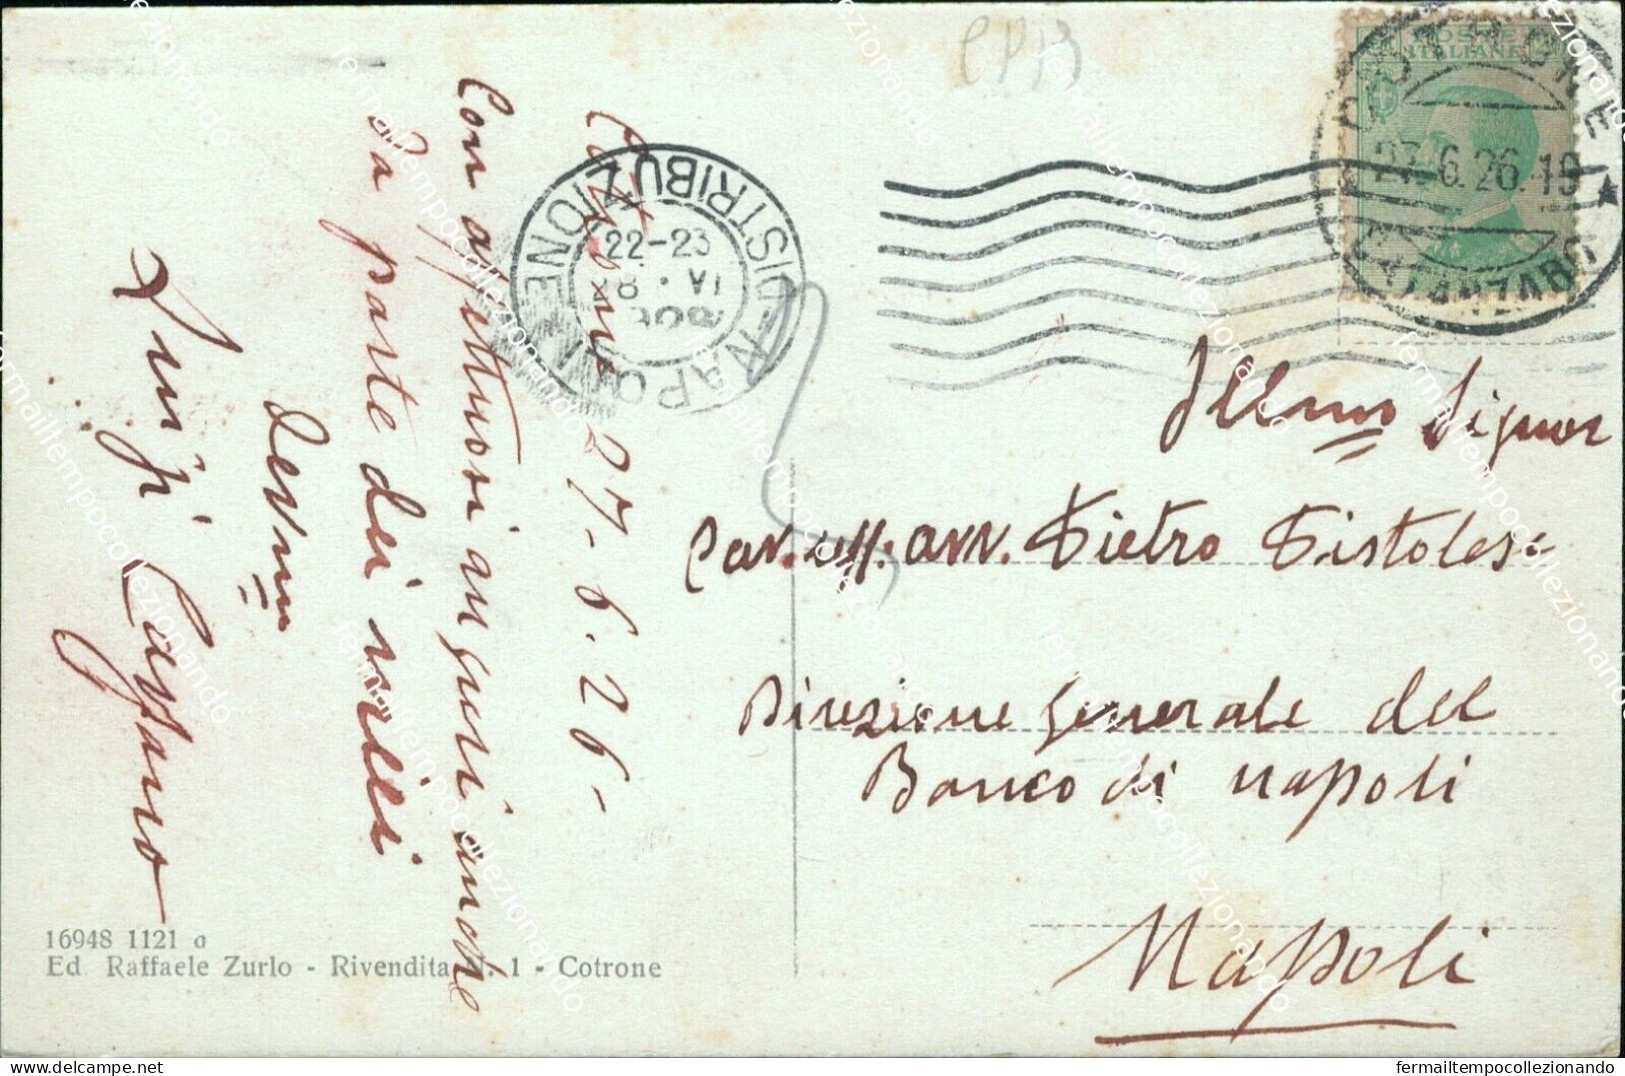 Cotrone 27-6.26-
Con affettuosi auguri anche
da parte dei miei
devmo
Luigi Cassano
16948 1121 a
Ed. Raffaele Zurlo - Rivendita N. 1 - Cotrone
NAPOLI - DISTRIBUZIONE
22-23
28 · VI
POSTE
ITALIANE
COTRONE
27.6.26.19
CATANZARO
Illmo Signor
Cav. uff. avv. Pietro Pistolese
Direzione Generale del
Banco di Napoli
Napoli
fermailtempocollezionando